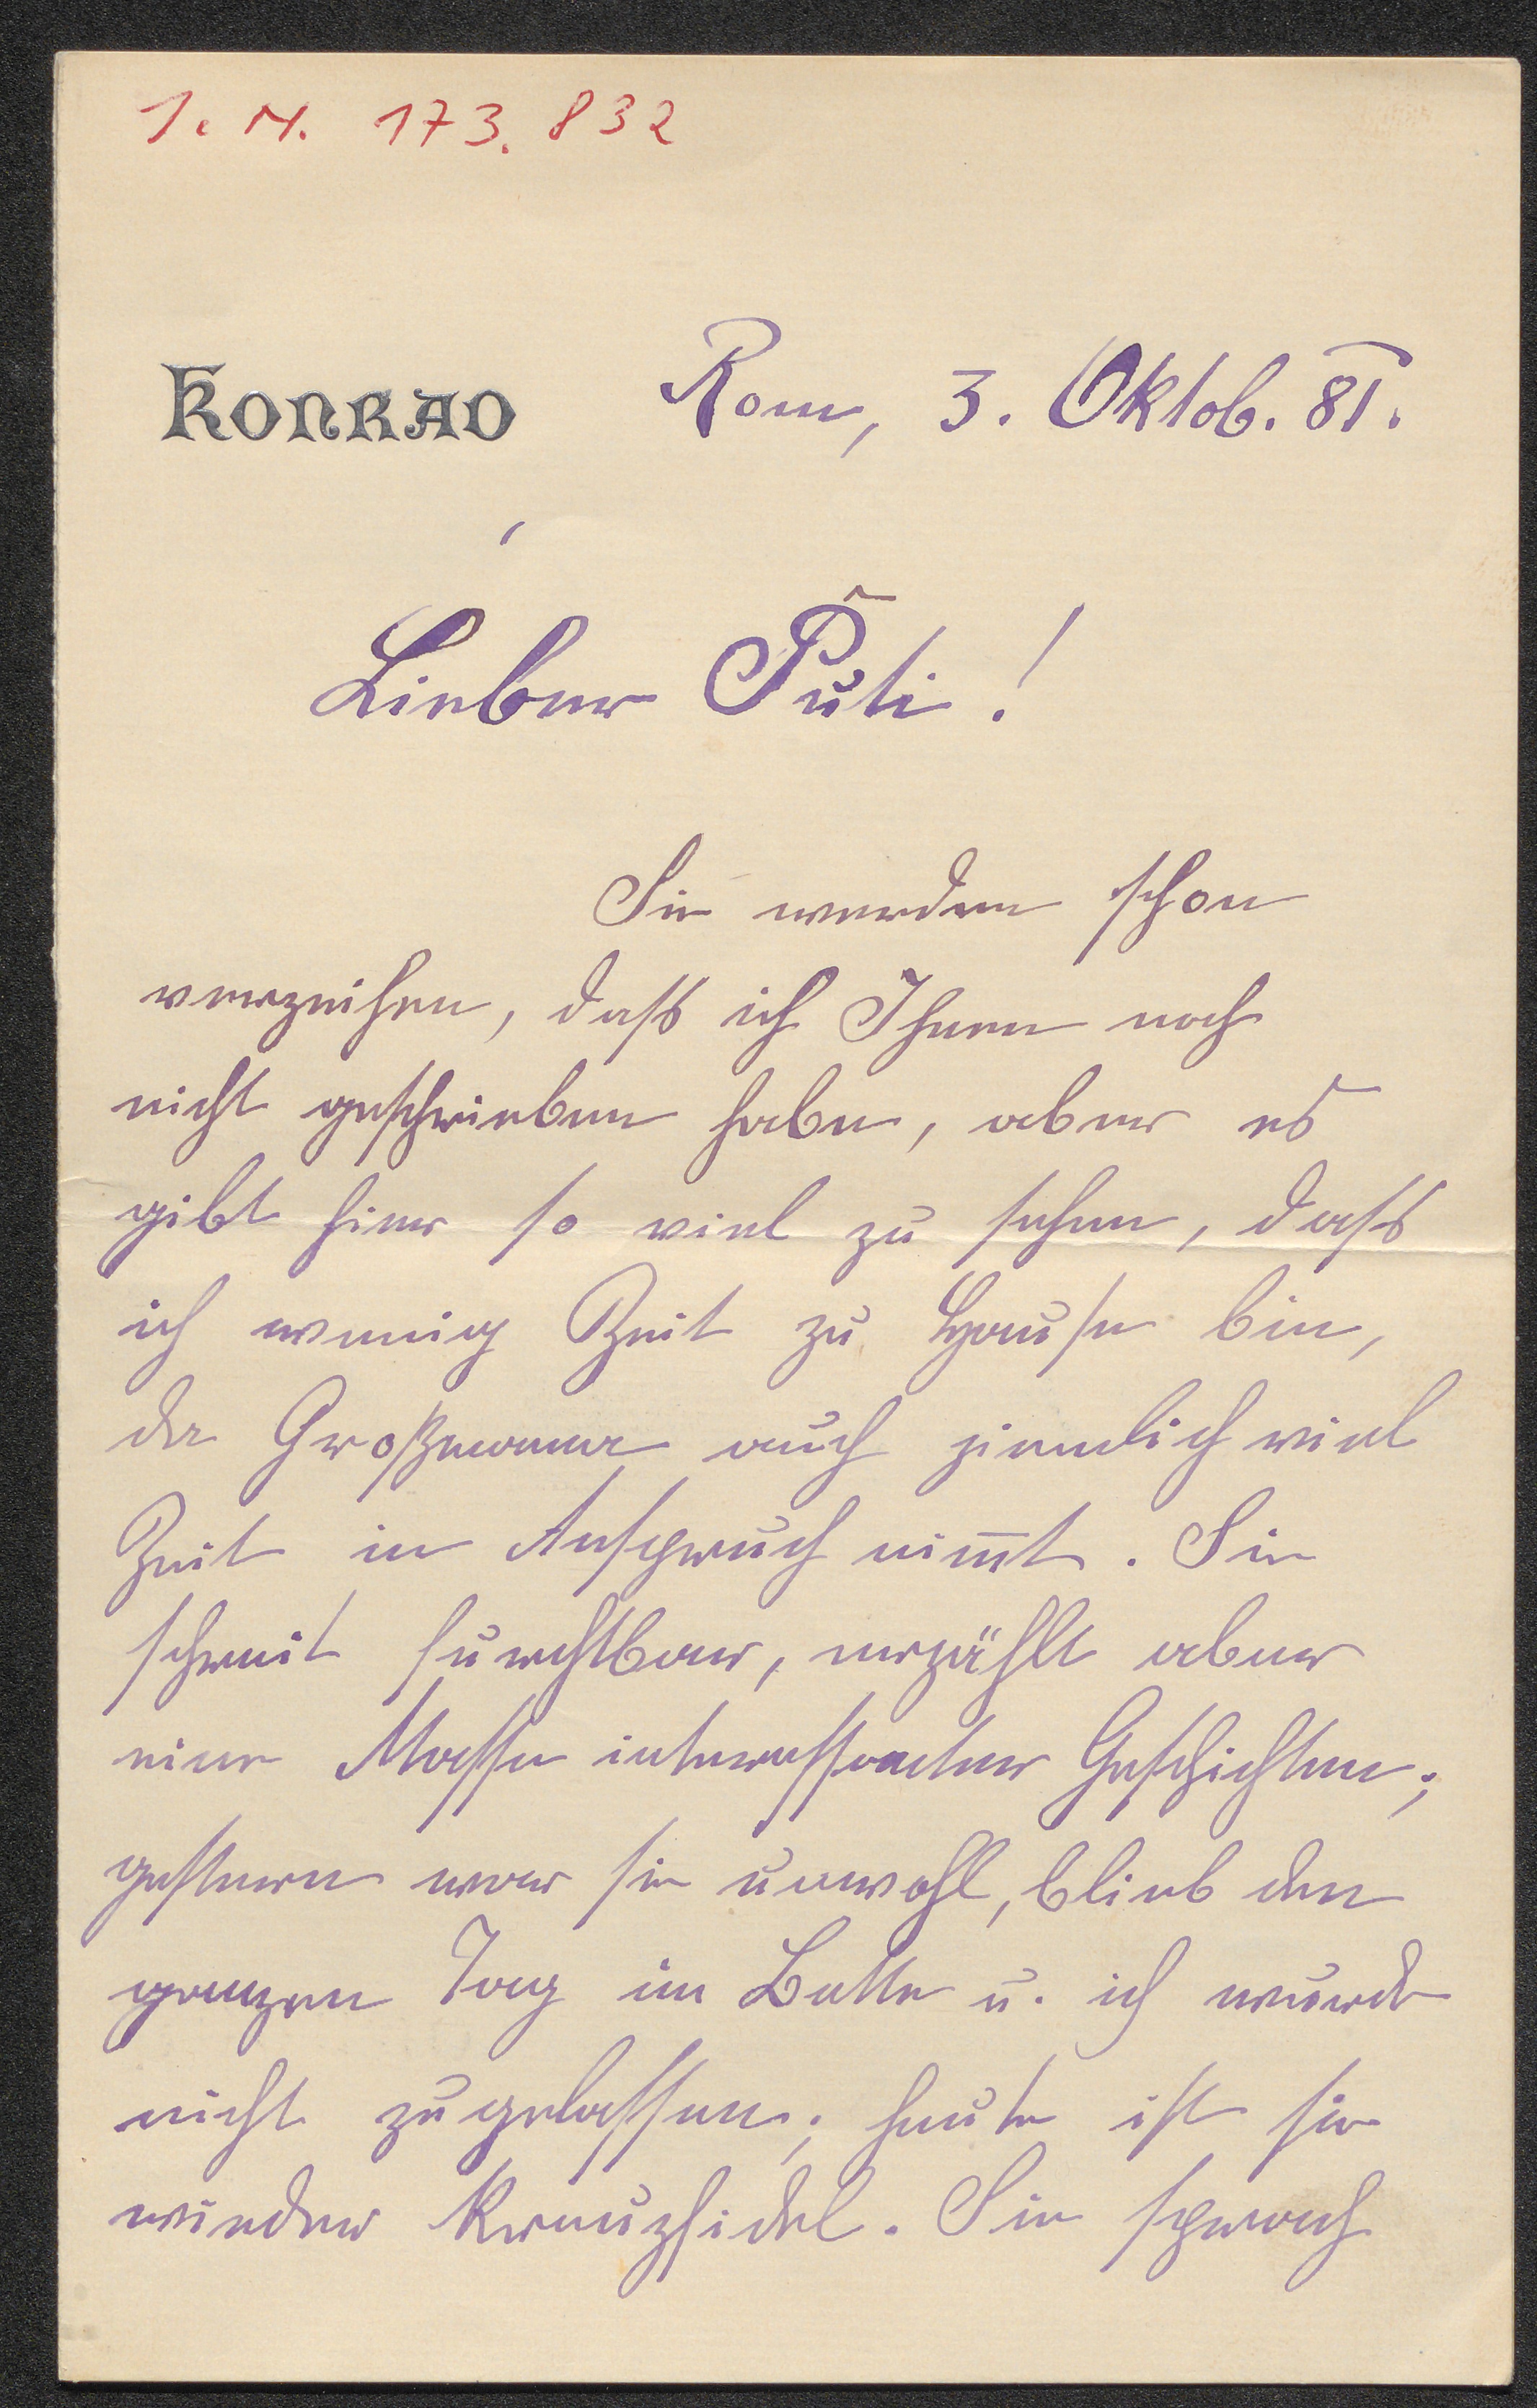 I. N. 173.832
KONRAD
Rom, 3. Oktob. 81.
Lieber Puti!
Sie werden schon
verzeihen, dass ich Ihnen noch
nicht geschrieben habe, aber es
gibt hier so viel zu sehen, dass
ich wenig Zeit zu Hause bin,
da Großmama auch ziemlich viel
Zeit in Anspruch nim̅t. Sie
schreit furchtbar, erzählt aber
eine Masse interessanter Geschichten;
gestern war sie unwohl, blieb den
ganzen Tag im Bette u. ich wurde
nicht zugelassen; heute ist sie
wieder kreuzfidel. Sie sprach